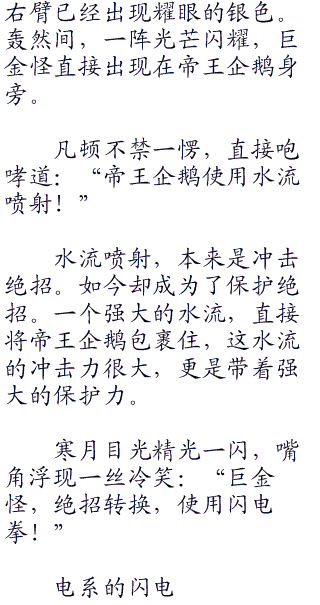 右臂已经出现耀眼的银色。
轰然间，一阵光芒闪耀，巨
金怪直接出现在帝王企鹅身
旁。
凡顿不禁一愣，直接咆
哮道：“帝王企鹅使用水流
喷射！”
水流喷射，本来是冲击
绝招。如今却成为了保护绝
招。一个强大的水流，直接
将帝王企鹅包裹住，这水流
的冲击力很大，更是带着强
大的保护力。
寒月目光精光一闪，嘴
角浮现一丝冷笑：“巨金
怪，绝招转换，使用闪电
拳！”
电系的闪电